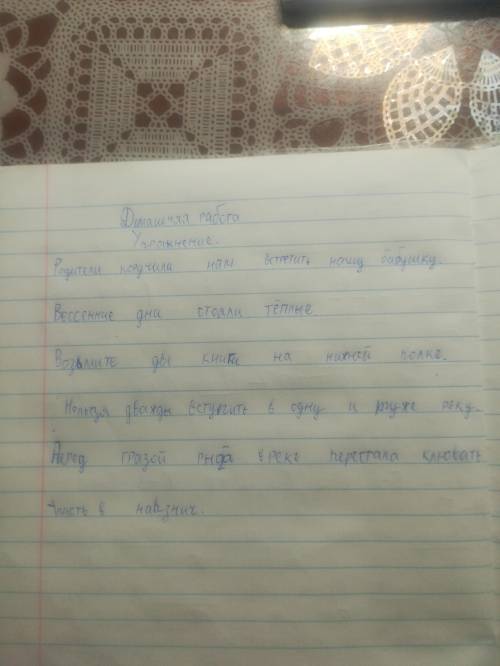 Домашняя работа
Упражнение.
Родители поручили нам встретить нашу бабушку.
Вессенние дни стояли тёплые
Возьмите две книги на нижней полке.
Нельзя дважды вступить в одну и туже реку.
Перед грозой рыба в реке перестала клювать
Упасть в навзнич.